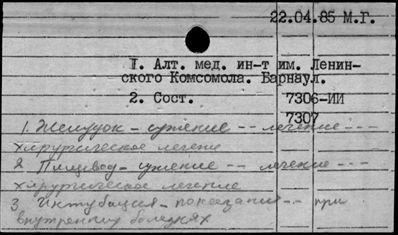 22.04.85 М.Г.
I. Алт. мед. ин-т им. Ленин-
ского Комсомола. Барнаул.
2. Сост. 7306-ИИ
7307
1. Желудок - сужение -- лечение ---
хирургическое лечение
2. Пищевод - сужение -- лечение ---
хирургическое лечение
3. Интубация - показания -- при
внутренних болезнях